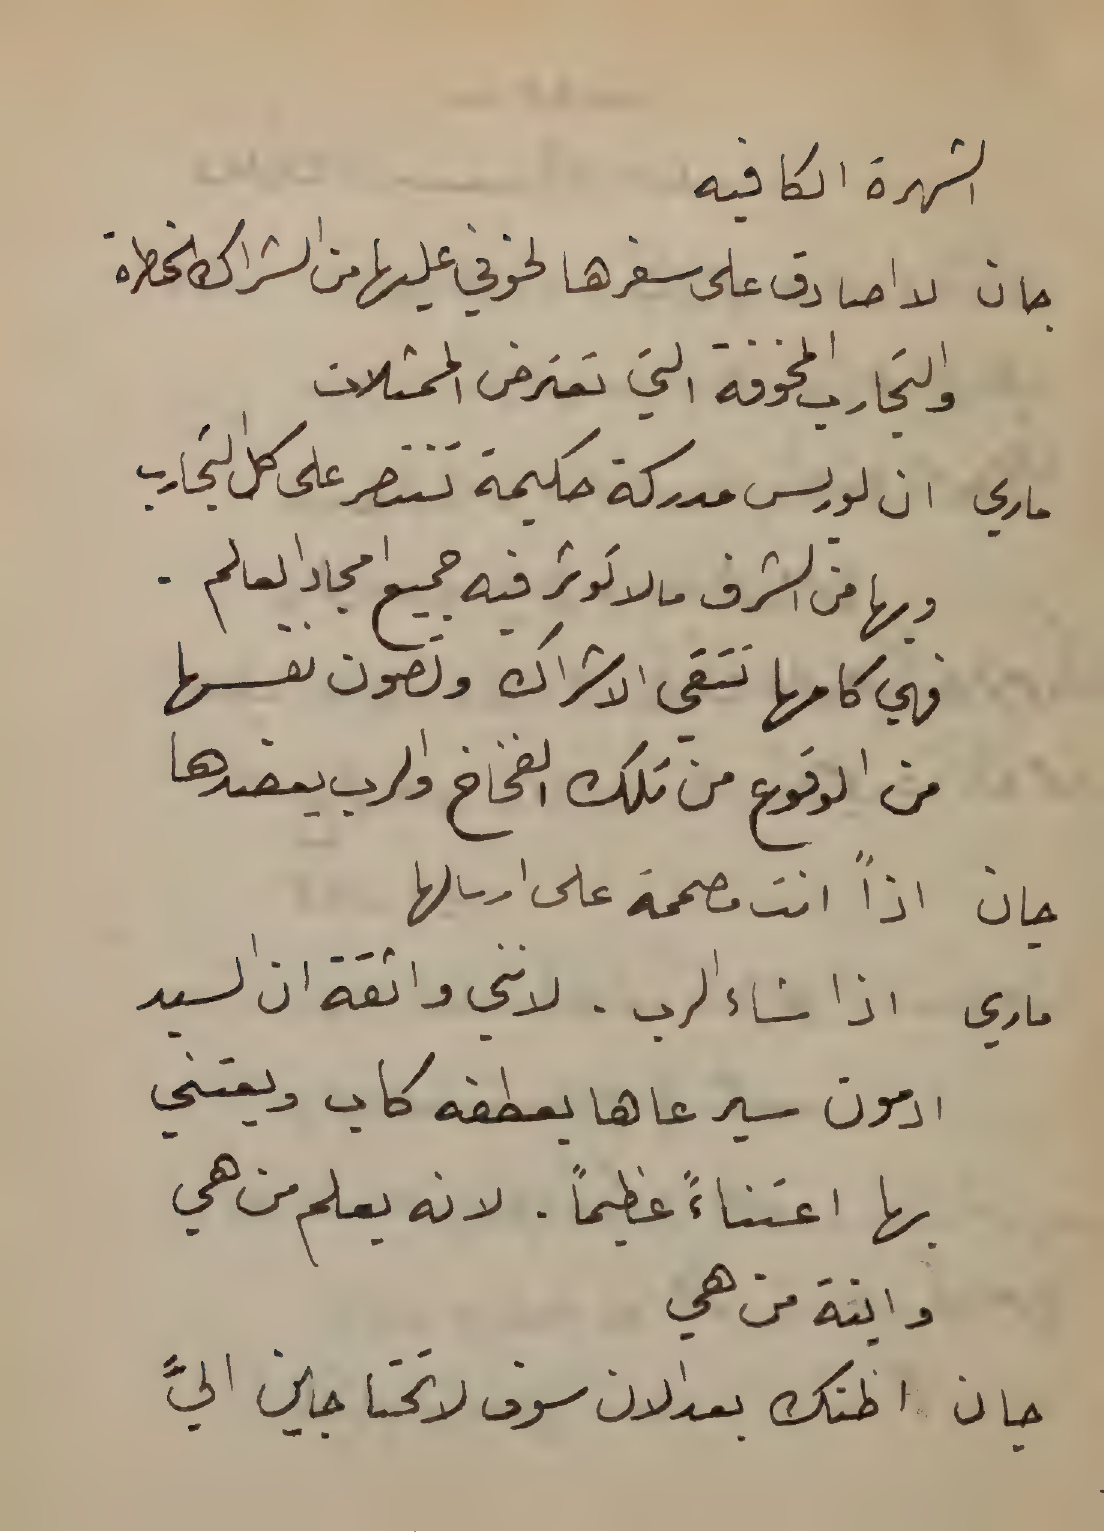 الشهرة الكافيه
جان لا اصادق على سفرها لخوفي عليها من الشراك الخطرة
والتجارب المخوفة التي تعترض الممثلات
ماري ان لوريس مدركة حكيمة تنتصر على كل التجارب
وبها من الشرف مالا توثر فيه جميع امجاد العالم .
فهي كامها تتقي الاشراك وتصون نفسها
من الوقوع من تلك الفخاخ والرب يعضدها
جان اذاً انت مصممة على ارسالها
ماري اذا شاء الرب . لانني واثقة ان السيد
ادمون سيرعاها بعطفه كاب ويعتني
بها اعتناءً عظيماً . لانه يعلم من هي
وابنة من هي
جان اظنك بعد الان سوف لا تحتاجين اليَّ